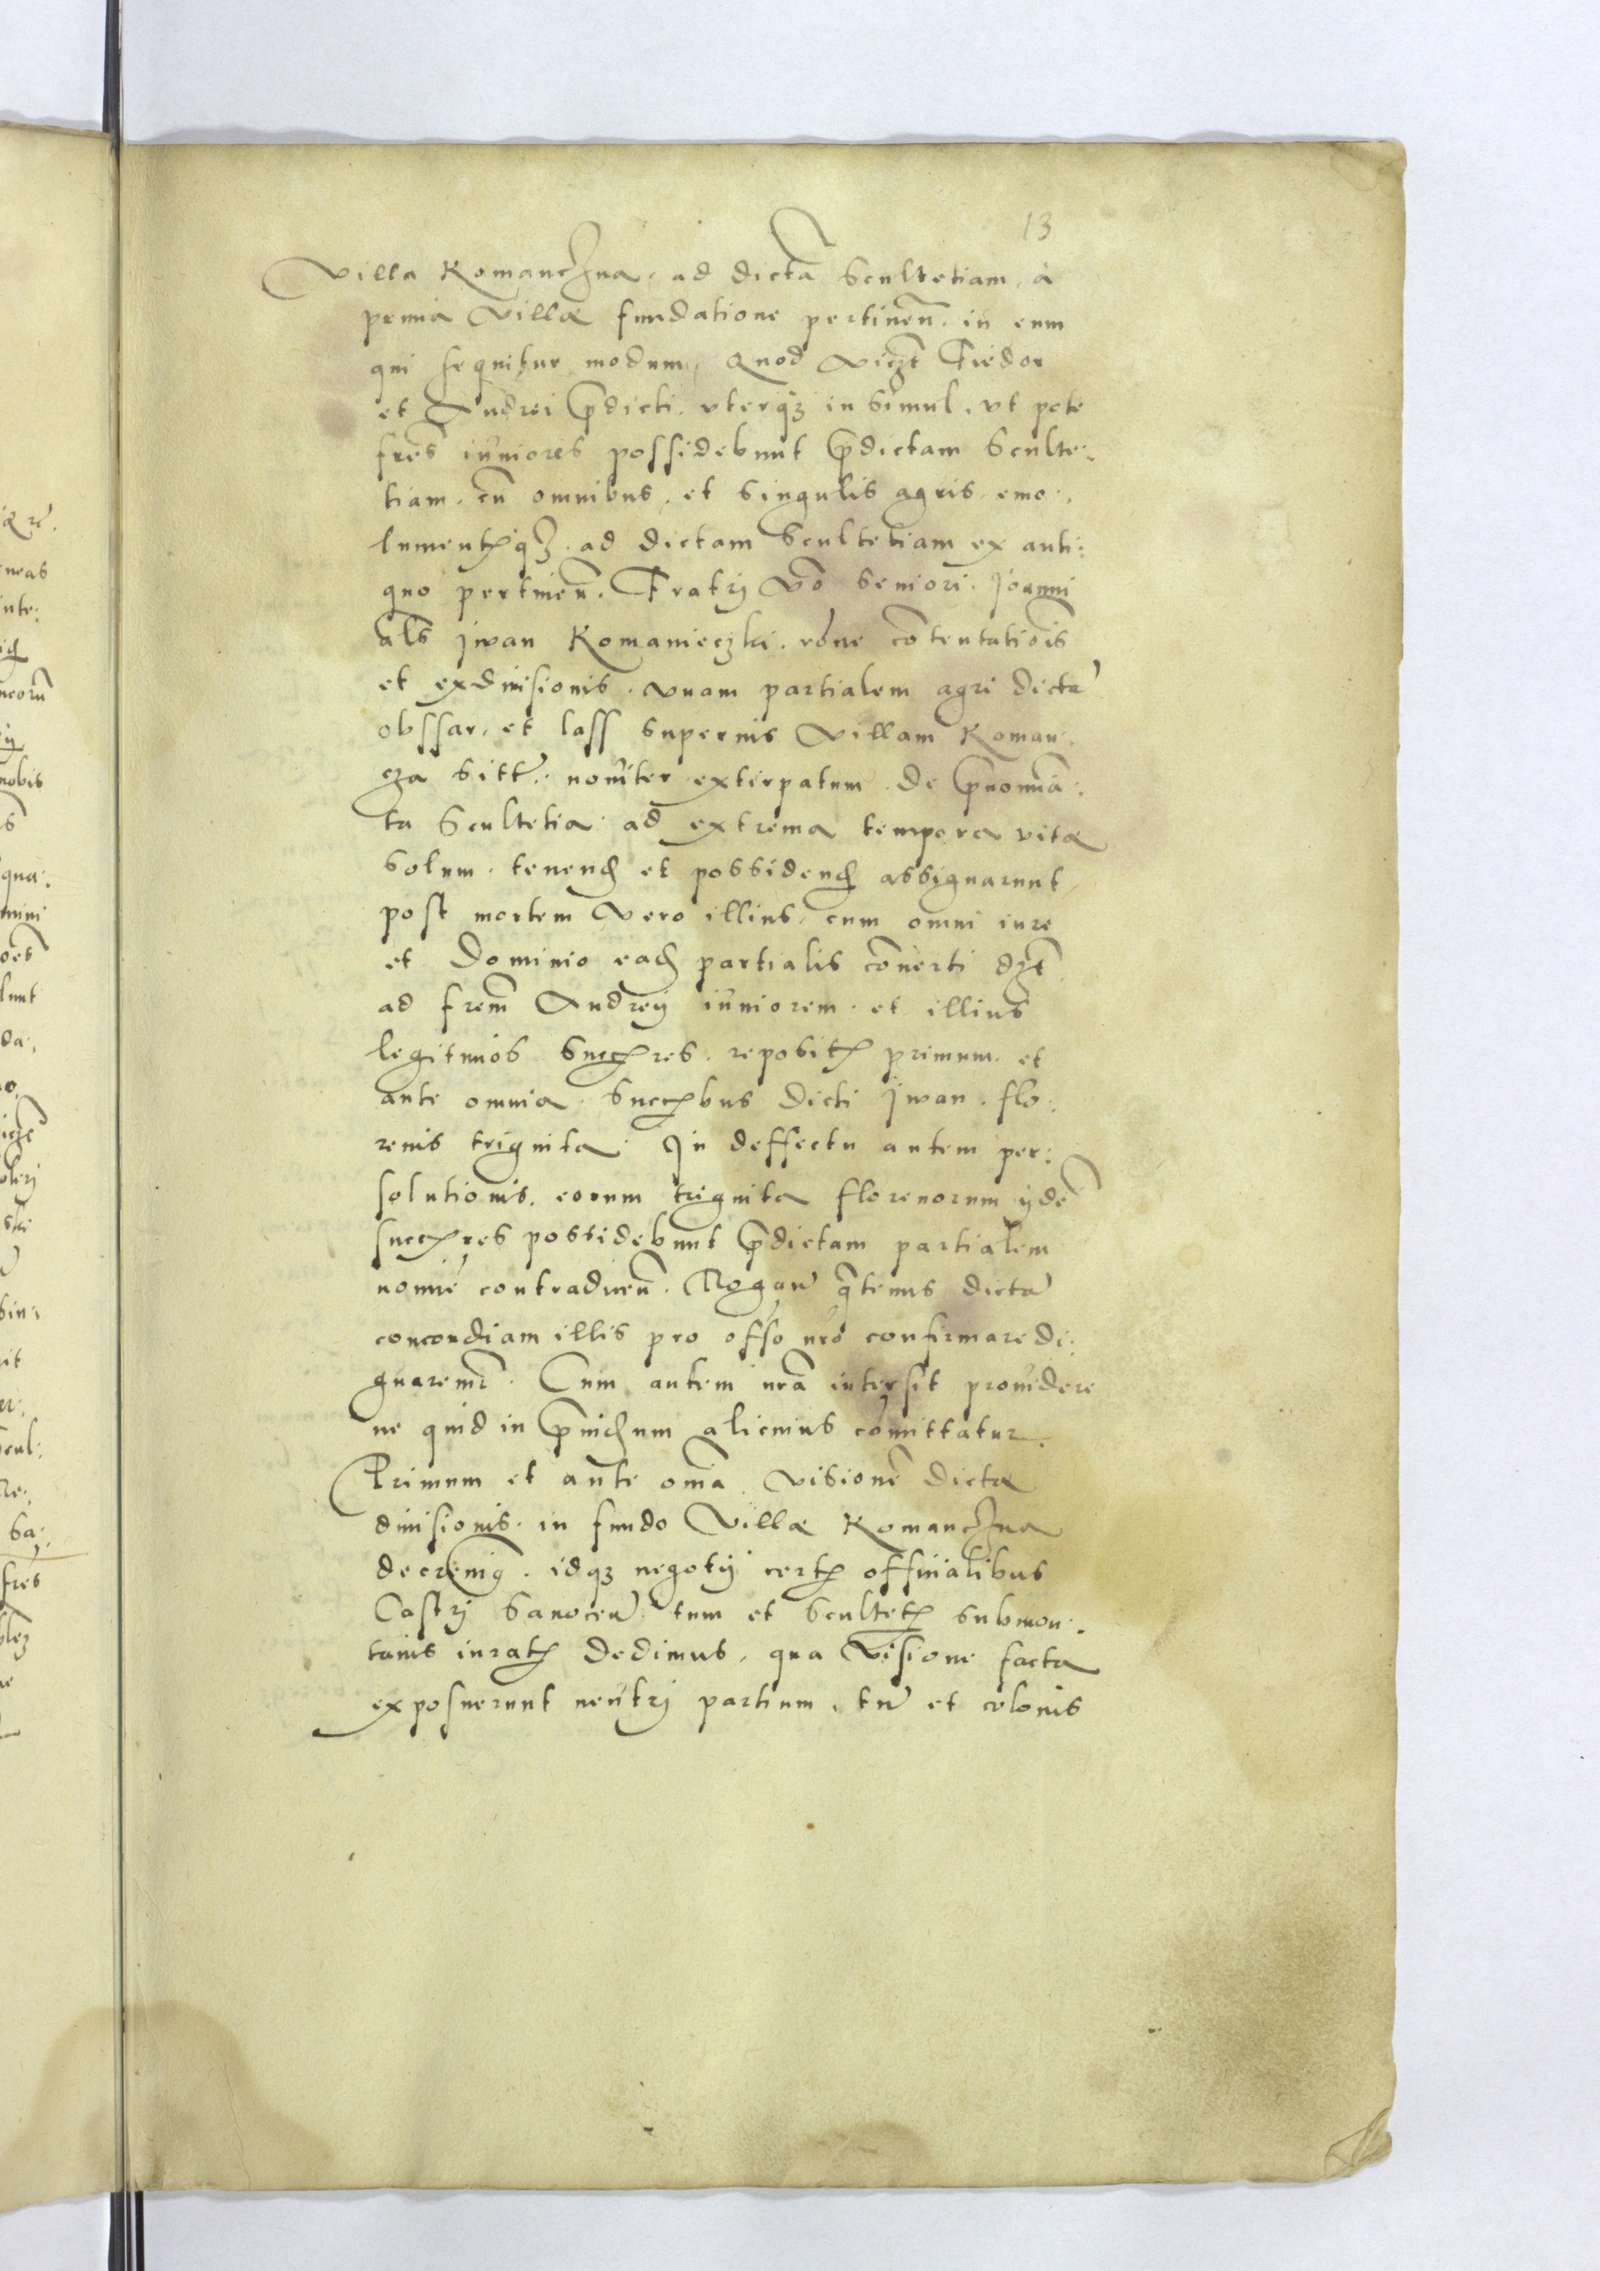 13
Villa Komanczna, ad dictā Scultetiam, a
prima Villæ fundatione pertineñ. in eum
qui sequitur modum, Quod viczt Fiedor
et Andrei p̄dicti, vterq3 in simul, vt pote
fres̄ iuniores possidebunt p̄dictam Sculte:
tiam, cū omnibus, et singulis agris, emo:
lumentꝭq3, ad dictam Scultetiam ex anti:
quo pertineñ. Fratrj vō seniori, Joanni
als̄ Jwan Komanieczki, rōne cōtentatiōis
et exdiuisionis, vnam partialem agri dictā
obssar, et lass supernis Villam Koman:
cza sitt̄. nouiter extirpatum, de p̄nomīa:
ta Scultetia ad extrema tempora vitæ
solum, tenend̄ et possidend̄ assignarunt,
post mortem vero illius, cum omni iure
et Dominio ead̄ partialis cōuerti dƷt
ad frem̄ Andreij iuniorem, et illius
legitimos Succꝭres, repositꝭ primum, et
ante omnia, Succꝭbus dicti Jwan, flo:
renis triginta. In deffectu autem per:
solutionis, eorum triginta florenorum ijdē
succꝭres possidebunt p̄dictam partialem
nomīe contradiceñ. Rogañ q̄tenus dictā
concordiam illis pro offo nr̄o confirmare di:
gnaremr̄. Cum autem nr̄a intersit prouidere
ne quid in p̄iud̄ium alicuius cōmittatur.
Primum et ante om̄ia, visionē dictæ
diuisionis, in fundo Villæ Komanczna
decreuimꝯ, idq3 negotij certꝭ offitialibus
Castrj Sanoceñ. tum et Scultetꝭ submon:
tanis iuratꝭ dedimus, qua Visione facta
exposuerunt neutrj partium, tū et colonis